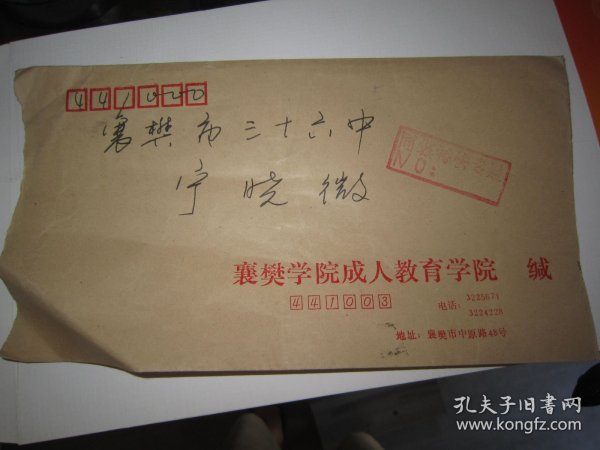 441000
襄樊市三十六中
宁晓微
No:
襄樊学院成人教育学院 缄
441003
电话: 3225671
3224228
地址: 襄樊市中原路48号
孔夫子旧书网
www.kongfz.com